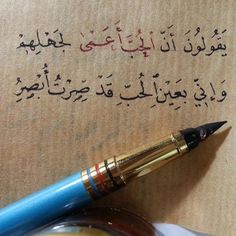 يَقُولُونَ أَنَّ الْحُبَّ أَعْمَىٰ لِجَهْلِهِمْ
وَإِنِّي بِعَيْنِ الْحُبِّ قَدْ صِرْتُ أُبْصِرُ